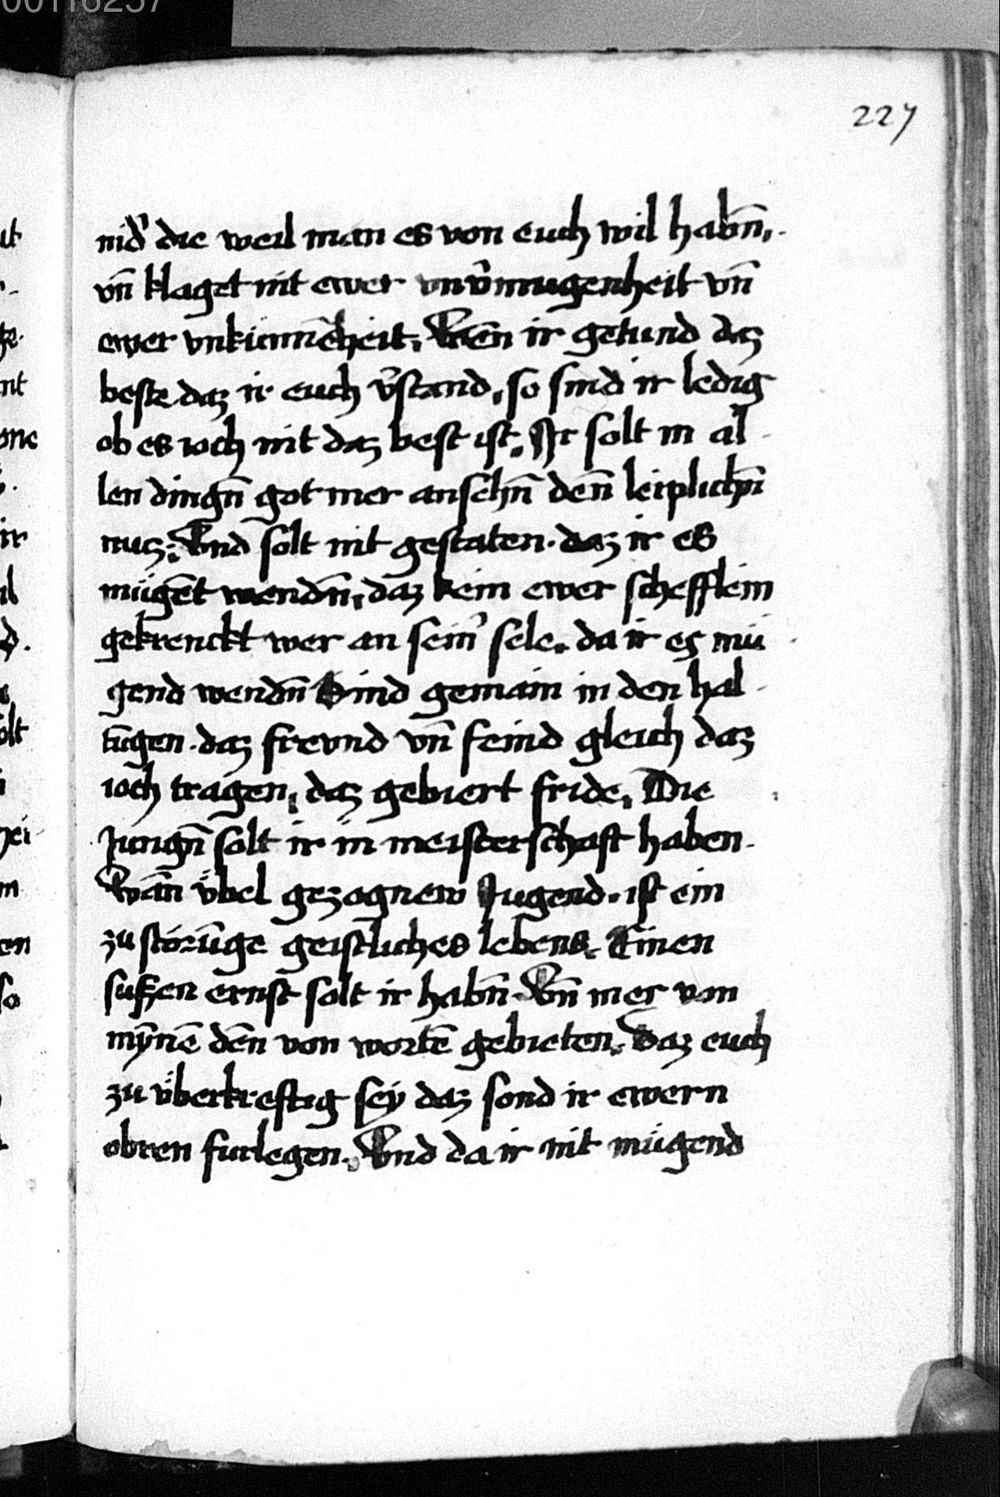 00116257
227
nid᷑ die weil man es von euch wil habn̄.
vn̄ klaget nit ewer vnv᷑mugenheit vn̄
ewer vnkünnēheit. Wēn ir getund daz
beste daz ir euch v᷑stand. so sind ir ledig
ob es ioch nit daz best ist. Ir solt in al
len dingn̄ got mer ansehn̄ den̄ leiplichn̄
nucz. Vnd solt nit gestaten. daz ir es
mügēt wendn̄. daz kein ewer schefflein
gekrenckt wer an sein᷑ sele. da ir es mü
gend wendn̄ Sind gemain in den hal
tūgen. daz frevnd vn̄ feind gleich daz
ioch tragen. daz gebiert fride. Die
Jungn̄ solt ir in meisterschaft haben.
Wān v̈bel gezognew Jugend. ist ein
zu störūge geistliches lebens. Einen
sußen ernst solt ir habn̄. Vn̄ mer von
mȳnē dēn von wortē gebieten. Daz euch
zu v̈berkreftig seÿ daz sond ir ewern
obren furlegen. Vnd da ir nit mügend